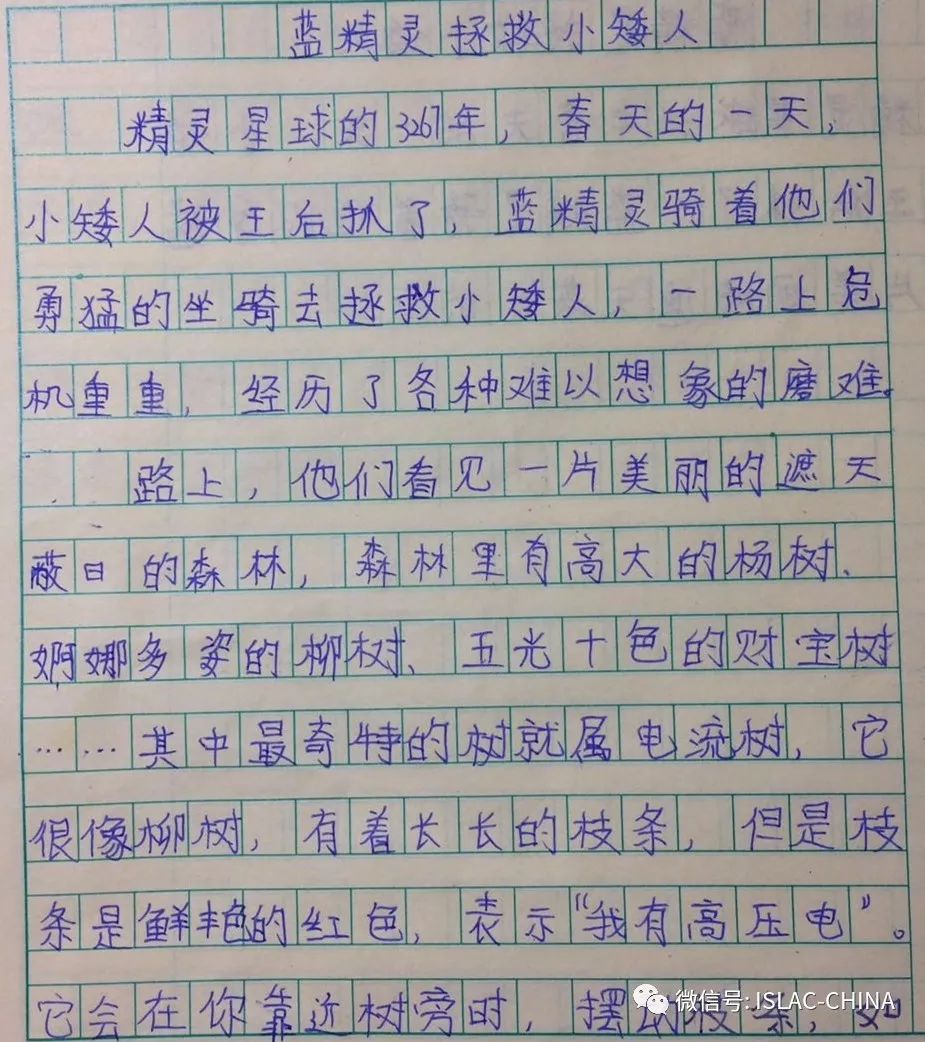 蓝精灵拯救小矮人
精灵星球的3267年，春天的一天，
小矮人被王后抓了，蓝精灵骑着他们
勇猛的坐骑去拯救小矮人，一路上危
机重重，经历了各种难以想象的磨难。
路上，他们看见一片美丽的遮天
蔽日的森林，森林里有高大的杨树、
婀娜多姿的柳树、五光十色的财宝树
……其中最奇特的树就属电流树，它
很像柳树，有着长长的枝条，但是枝
条是鲜艳的红色，表示“我有高压电”。
它会在你靠近树旁时，摆动枝条，如
微信号: ISLAC-CHINA